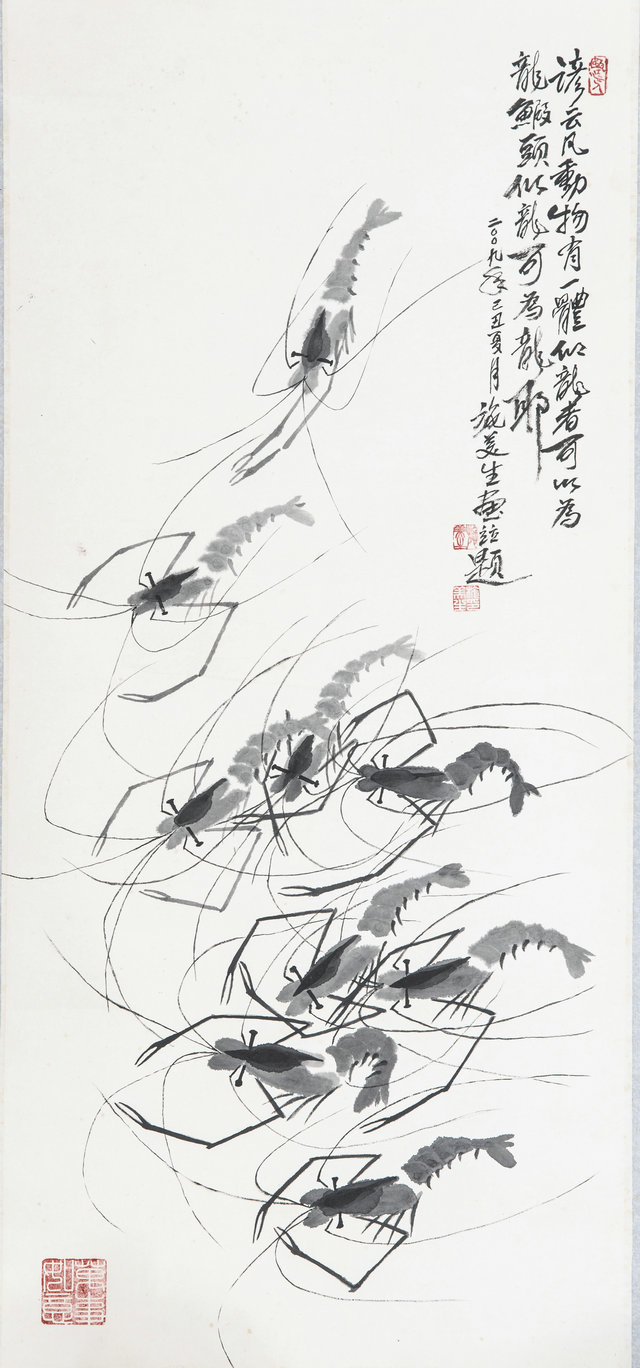 諺云凡動物有一體似龍者可以為
龍鰕頭似龍可為龍耶
二〇〇九年己丑夏月 施美生畫並題